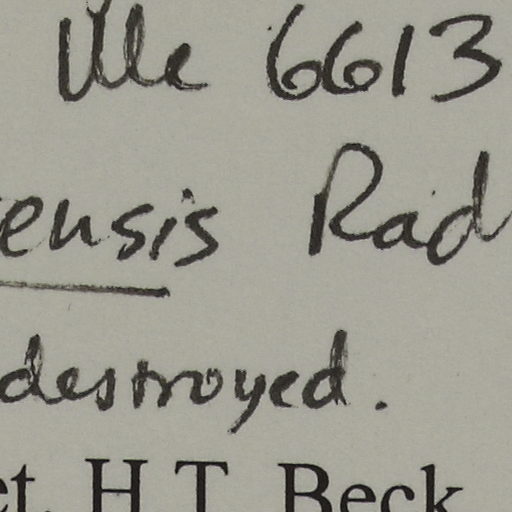 Ule 6613
ensis Rad
destroyed.
et. H.T. Beck